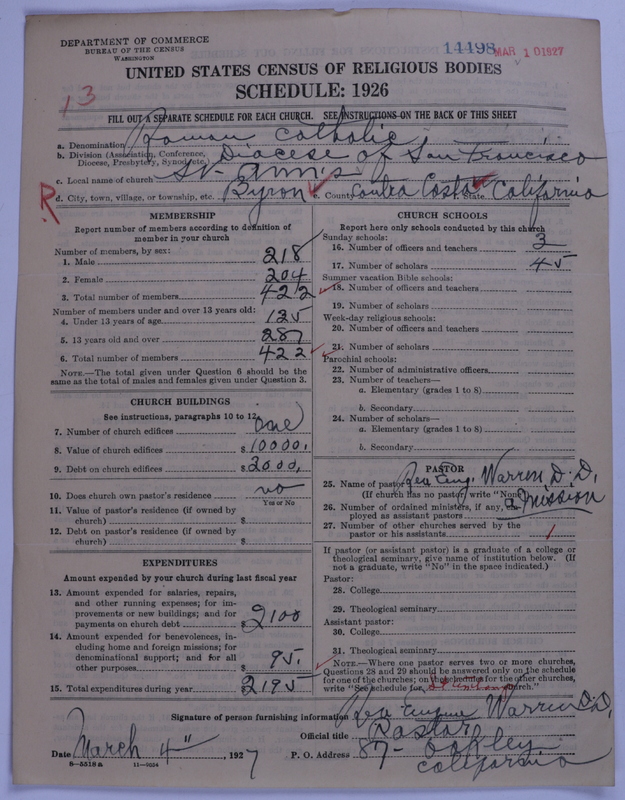 DEPARTMENT OF COMMERCE
BUREAU OF THE CENSUS
WASHINGTON
14498 MAR 10 1927
UNITED STATES CENSUS OF RELIGIOUS BODIES
SCHEDULE: 1926
13
FILL OUT A SEPARATE SCHEDULE FOR EACH CHURCH. SEE INSTRUCTIONS ON THE BACK OF THIS SHEET
a. Denomination Roman Catholic
b. Division (Association, Conference, Diocese, Presbytery, Synod, etc.) Diocese of San Francisco
c. Local name of church St. Ann's
R
d. City, town, village, or township, etc. Byron e. County Contra Costa State California
MEMBERSHIP
Report number of members according to definition of member in your church
Number of members, by sex:
1. Male 218
2. Female 204
3. Total number of members 422
Number of members under and over 13 years old:
4. Under 13 years of age 135
5. 13 years old and over 287
6. Total number of members 422
NOTE.—The total given under Question 6 should be the same as the total of males and females given under Question 3.
CHURCH BUILDINGS
See instructions, paragraphs 10 to 12
7. Number of church edifices One
8. Value of church edifices $10000.
9. Debt on church edifices $2000.
10. Does church own pastor's residence no
Yes or No
11. Value of pastor's residence (if owned by church) $
12. Debt on pastor's residence (if owned by church) $
EXPENDITURES
Amount expended by your church during last fiscal year
13. Amount expended for salaries, repairs, and other running expenses; for improvements or new buildings; and for payments on church debt $2100
14. Amount expended for benevolences, including home and foreign missions; for denominational support; and for all other purposes $95.
15. Total expenditures during year $2195
CHURCH SCHOOLS
Report here only schools conducted by this church
Sunday schools:
16. Number of officers and teachers 3
17. Number of scholars 45
Summer vacation Bible schools:
18. Number of officers and teachers
19. Number of scholars
Week-day religious schools:
20. Number of officers and teachers
21. Number of scholars
Parochial schools:
22. Number of administrative officers
23. Number of teachers—
a. Elementary (grades 1 to 8)
b. Secondary
24. Number of scholars—
a. Elementary (grades 1 to 8)
b. Secondary
PASTOR
25. Name of pastor Rev Eug. Warren D.D.
(If church has no pastor, write "None") a mission
26. Number of ordained ministers, if any, employed as assistant pastors
27. Number of other churches served by the pastor or his assistants
If pastor (or assistant pastor) is a graduate of a college or theological seminary, give name of institution below. (If not a graduate, write "No" in the space indicated.)
Pastor:
28. College
29. Theological seminary
Assistant pastor:
30. College
31. Theological seminary
NOTE.—Where one pastor serves two or more churches, Questions 28 and 29 should be answered only on the schedule for one of the churches; on the schedule for the other churches, write "See schedule for St Anthony church."
Signature of person furnishing information Rev Eugene Warren D.D.
Official title Pastor
Date March 4", 1927 P. O. Address 87- Oakley
California
8—5518a 11—9034